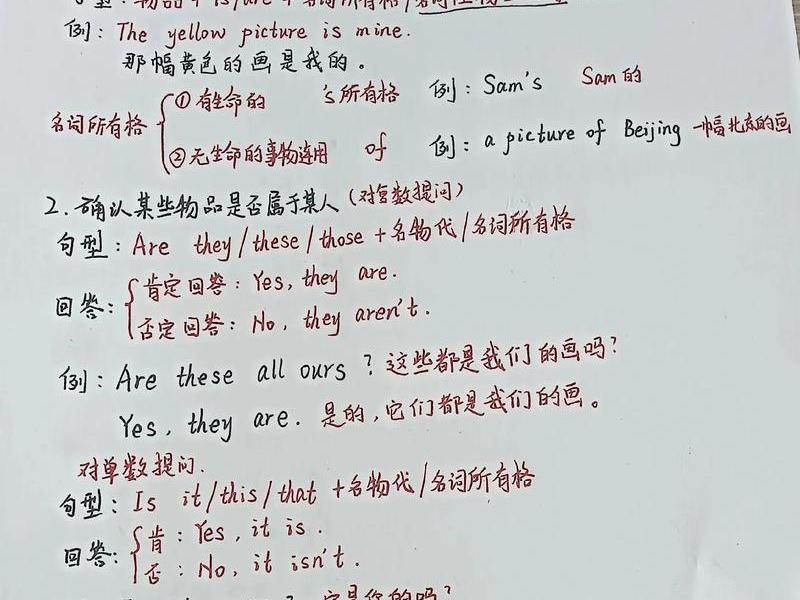 句型：物品 + is/are + 名词所有格/名词性物主代词
例：The yellow picture is mine.
那幅黄色的画是我的。
名词所有格
①有生命的 's所有格 例：Sam's Sam的
②无生命的事物连用 of 例：a picture of Beijing 一幅北京的画
2.确认某些物品是否属于某人（对复数提问）
句型：Are they/these/those + 名物代/名词所有格
回答：
肯定回答：Yes, they are.
否定回答：No, they aren't.
例：Are these all ours？这些都是我们的画吗？
Yes, they are. 是的，它们都是我们的画。
对单数提问.
句型：Is it/this/that + 名物代/名词所有格
回答：
肯：Yes, it is.
否：No, it isn't.
它是你的吗？